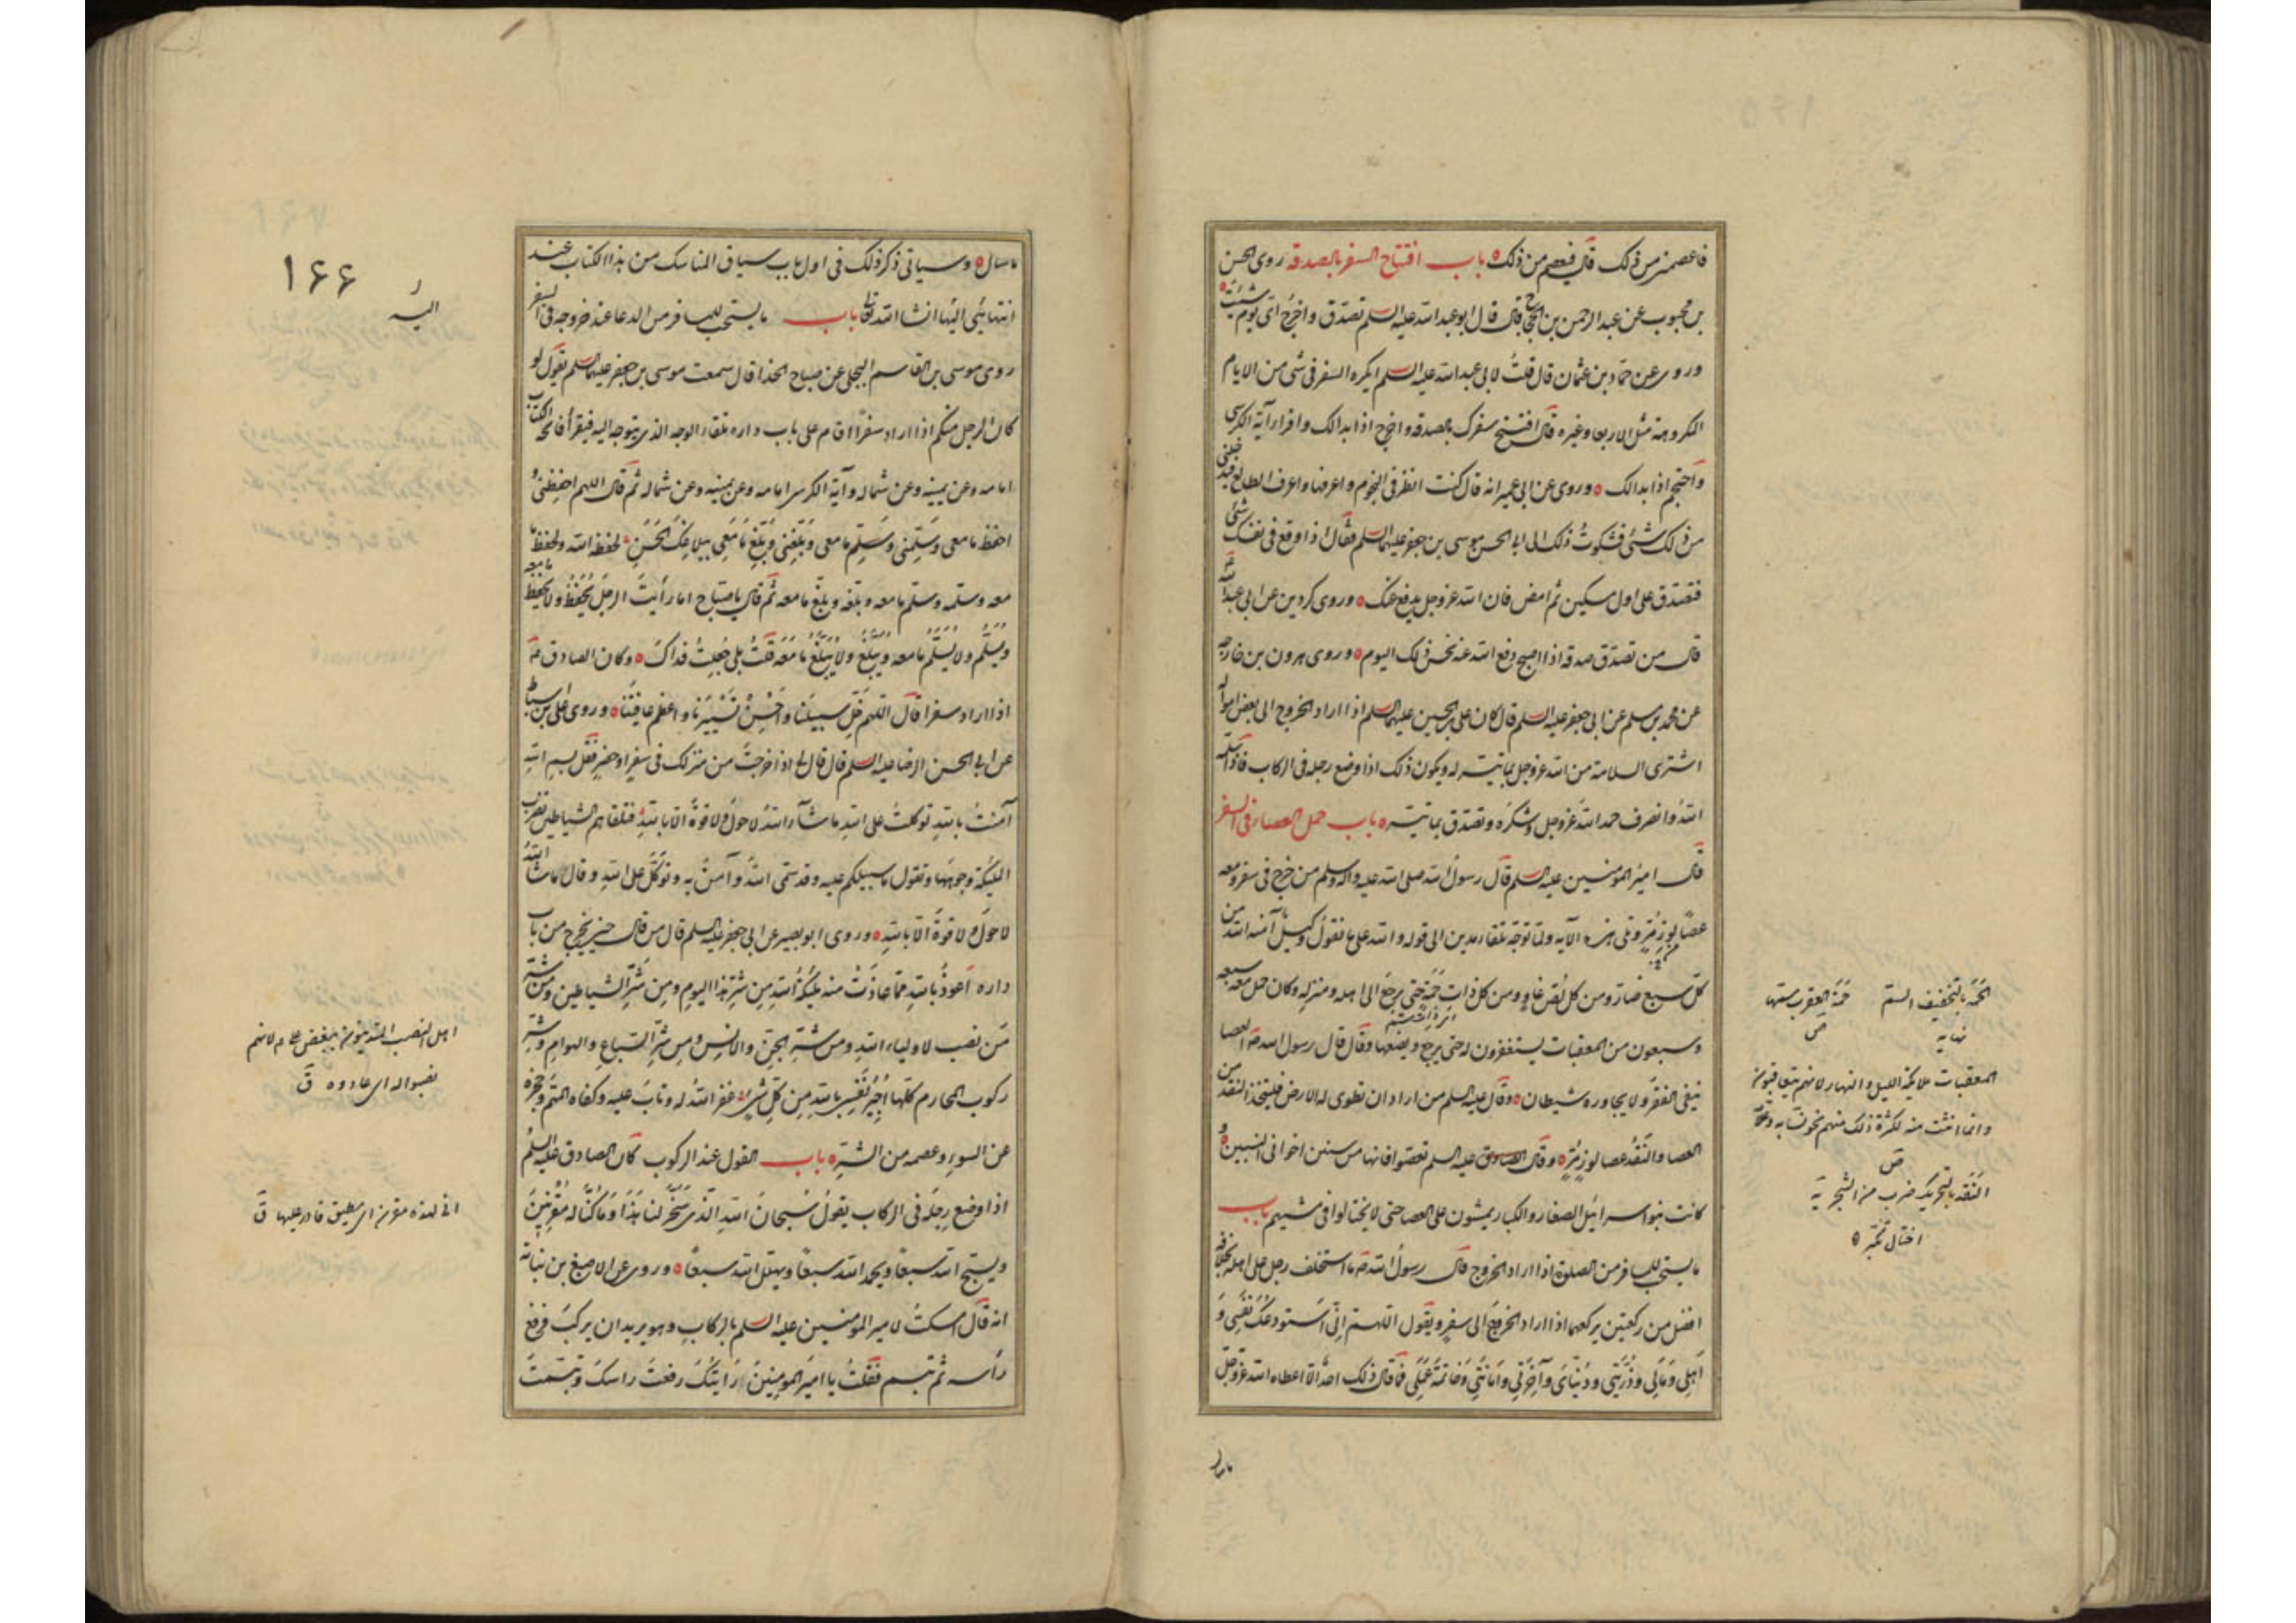 فاعصمنى من ذلك قال فيعصم من ذلك باب افتتاح السفر بالصدقه روى الحسن
بن محبوب عن عبد الرحمن بن الحجاج قال قال ابو عبد الله عليه السلم تصدق واخرج اى يوم شئت
وروى عن حماد بن عثمان قال قلت لابى عبد الله عليه السلم ايكره السفر فى شئ من الايام
المكروهة مثل الاربعا وغيره قال افتتح سفرك بالصدقه واخرج اذا بدا لك واقرا آية الكرسى
واحتجم اذا بدا لك وروى عن ابن ابى عمير انه قال كنت انظر فى النجوم واعرفها واعرف الطالع فيدخلنى
من ذلك شئ فشكوت ذلك الى ابى الحسن موسى بن جعفر عليهما السلم فقال اذا وقع فى نفسك شئ
فتصدق على اول مسكين ثم امض فان الله عز وجل يدفع عنك وروى كردين عن ابى عبد الله
قال من تصدق صدقه اذا اصبح دفع الله عنه نحس ذلك اليوم وروى هرون بن خارجه
عن محمد بن مسلم عن ابى جعفر عليه السلم قال كان على بن الحسين عليهما السلم اذا اراد الخروج الى بعض امواله
اشترى السلامة من الله عز وجل بما تيسر له ويكون ذلك اذا وضع رجله فى الركاب فاذا سلمه
الله وانصرف حمد الله عز وجل وشكره وتصدق بما تيسر باب حمل العصا فى السفر
قال امير المؤمنين عليه السلم قال رسول الله صلى الله عليه واله وسلم من خرج فى سفر ومعه
عصا لوز مر وتلى هذه الآيه ولما توجه تلقاء مدين الى قوله والله على ما نقول وكيل آمنه الله من
كل سبع ضار ومن كل لص عاد ومن كل ذات حمة حتى يرجع الى اهله ومنزله وكان معه سبعه
وسبعون من المعقبات يستغفرون له حتى يرجع ويضعها وقال قال رسول الله ص العصا
تنفى الفقر ولا يجاوره شيطان وقال عليه السلم من اراد ان تطوى له الارض فليتخذ النقد من
العصا والنقد عصا لوز مر وقال الصادق عليه السلم تعصوا فانها من سنن اخوانى النبيين و
كانت بنو اسرائيل الصغار والكبار يمشون على العصا حتى لا يختالوا فى مشيهم باب
ما يستحب للمسافر من الصلوة اذا اراد الخروج قال رسول الله ص ما استخلف رجل على اهله بخلافة
افضل من ركعتين يركعهما اذا اراد الخروج الى سفر ويقول اللهم انى استودعك نفسى و
اهلى ومالى وذريتى ودنياى وآخرتى وامانتى وخاتمة عملى فما قال ذلك احد الا اعطاه الله عز وجل
الحمة بالتخفيف السم
نهايه
حمة العقرب سمها
ص
المعقبات ملائكة الليل والنهار لانهم يتعاقبون
وانما انثت منه لكثرة ذلك منهم نحو نسابه
ص
النقد بالتحريك ضرب من الشجر
اختال تكبر
ما سال
ما سال وسياتى ذكر ذلك فى اول باب سياق المناسك من هذا الكتاب عند
انتهائى اليها انشا الله تعالى باب ما يستحب للمسافر من الدعا عند خروجه فى السفر
روى موسى بن القاسم البجلى عن صباح الحذا قال سمعت موسى بن جعفر عليهما السلم يقول لو
كان الرجل منكم اذا اراد سفرا اقام على باب داره تلقاء الوجه الذى يتوجه اليه فيقرأ فاتحة الكتاب
امامه وعن يمينه وعن شماله وآية الكرسى امامه وعن يمينه وعن شماله ثم قال اللهم احفظنى و
احفظ ما معى وسلمنى وسلم ما معى وبلغنى وبلغ ما معى ببلاغك الحسن لحفظه الله ولحفظ ما
معه وسلمه وسلم ما معه وبلغه وبلغ ما معه ثم قال يا صباح اما رأيت الرجل يحفظ ولا يحفظ ما معه
ويسلم ولا يسلم ما معه ويبلغ ولا يبلغ ما معه قلت بلى جعلت فداك وكان الصادق ع
اذا اراد سفرا قال اللهم خل سبيلنا واحسن تسييرنا واعظم عافيتنا وروى على بن اسباط
عن ابى الحسن الرضا عليه السلم قال قال لى اذا خرجت من منزلك فى سفر او حضر فقل بسم الله
آمنت بالله توكلت على الله ما شاء الله لا حول ولا قوة الا بالله فتلقاهم الشياطين فتضرب
المليكة وجوهها وتقول ما سبيلكم عليه وقد سمى الله وآمن به وتوكل على الله وقال ما شاء الله
لا حول ولا قوة الا بالله وروى ابو بصير عن ابى جعفر عليه السلم قال من قال حين يخرج من باب
داره اعوذ بالله مما عاذت منه مليكة الله من شر هذا اليوم ومن شر الشياطين ومن شر
من نصب لاولياء الله ومن شر الجن والانس ومن شر السباع والهوام وشر
ركوب المحارم كلها اجير نفسى بالله من كل شر غفر الله له وتاب عليه وكفاه المهم وحجزه
عن السوء وعصمه من الشر باب القول عند الركوب كان الصادق عليه السلم
اذا وضع رجله فى الركاب يقول سبحان الله الذى سخر لنا هذا وما كنا له مقرنين
ويسبح الله سبعا ويحمد الله سبعا ويهلل الله سبعا وروى عن الاصبغ بن نباته
انه قال امسكت لامير المؤمنين عليه السلم بالركاب وهو يريد ان يركب فرفع
رأسه ثم تبسم فقلت يا امير المؤمنين رايتك رفعت راسك وتبسمت
۱۶۶
اليه
اهل النصب المتدينون ببغض على ع م لانهم
نصبوا له اى عادوه ق
اى مطيق قادر عليها ق